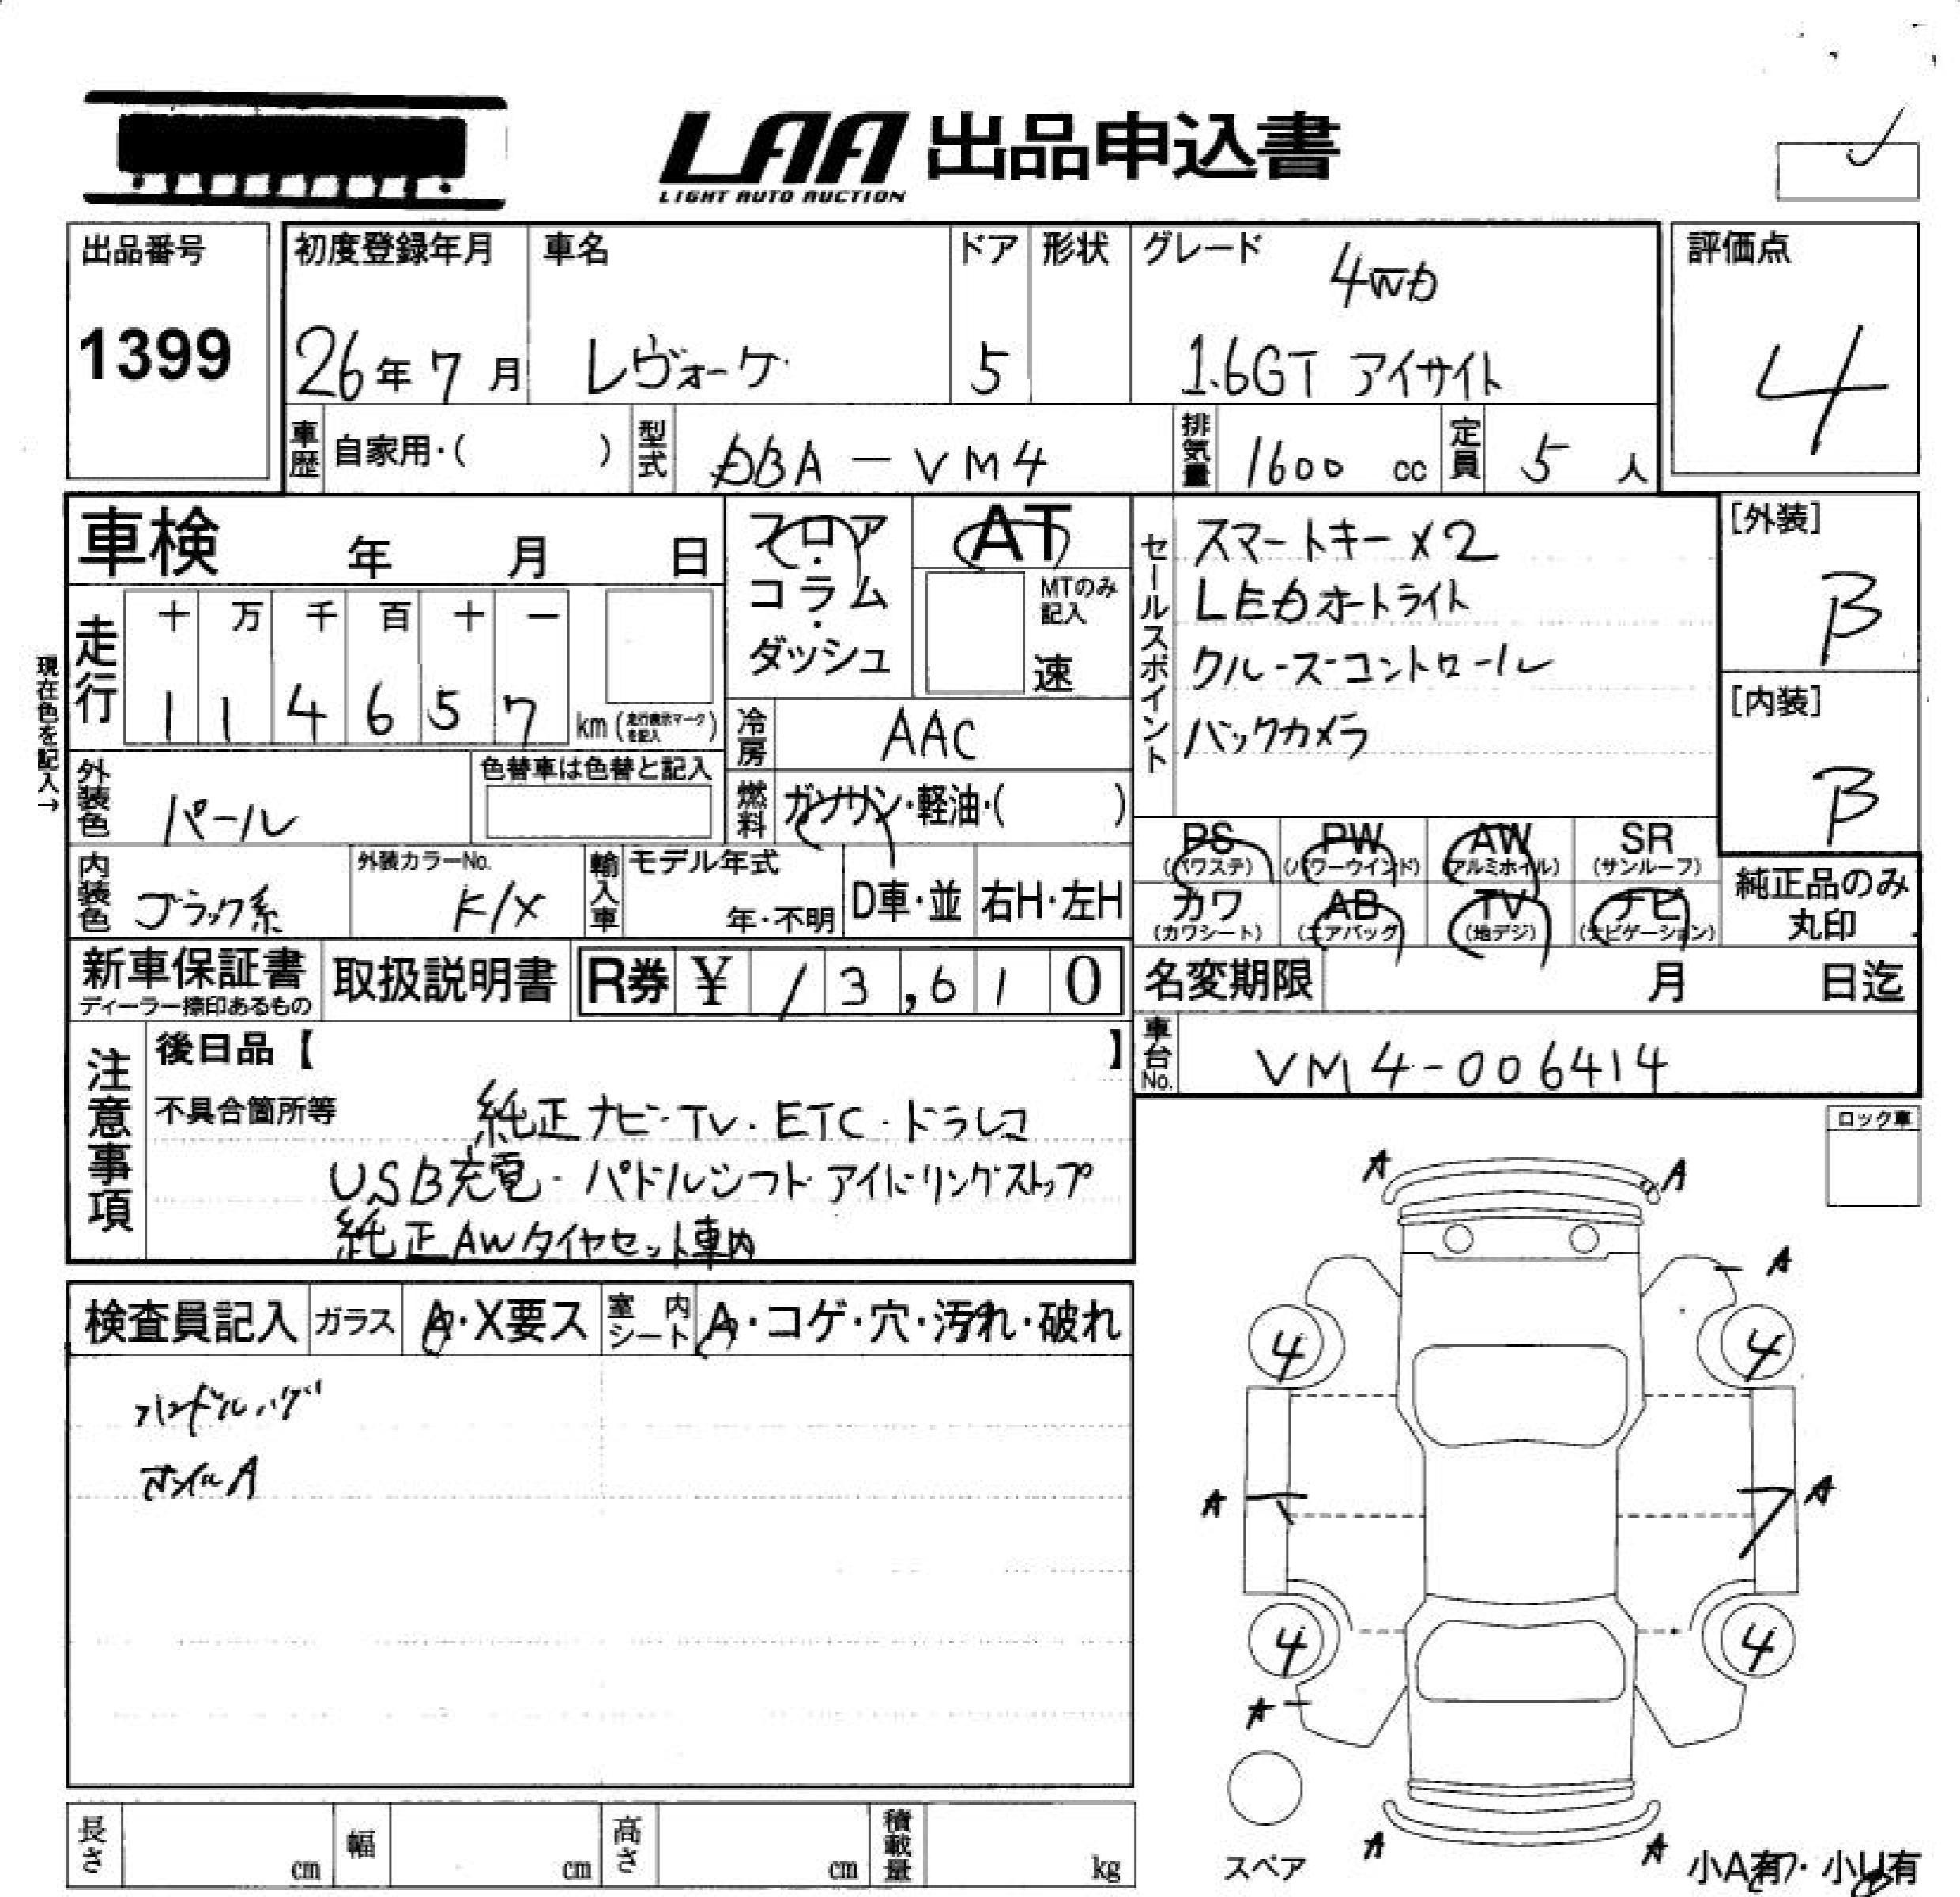 LAA 出品申込書
LIGHT AUTO AUCTION
出品番号
1399
初度登録年月
26年 7月
車名
レヴォーグ
ドア
5
形状
グレード
4WD
1.6GT アイサイト
評価点
4
車歴 自家用・( )
型式 DBA-VM4
排気量 1600 cc
定員 5 人
車検 年 月 日
フロア・コラム・ダッシュ
AT
MTのみ記入
速
セールスポイント
スマートキー×2
LEDオートライト
クルーズコントロール
バックカメラ
[外装]
B
[内装]
B
現在色を記入→
走行
十 万 千 百 十 一
1 1 4 6 5 7 km (走行表示マークを記入)
冷房 AAC
外装色 パール
色替車は色替と記入
燃料 ガソリン・軽油・( )
PS (パワステ) PW (パワーウインド) AW (アルミホイル) SR (サンルーフ)
カワ (カワシート) AB (エアバッグ) TV (地デジ) ナビ (ナビゲーション)
純正品のみ丸印
内装色 ブラック系
外装カラーNo. K/X
輸入車 モデル年式 年・不明
D車・並 右H・左H
新車保証書
ディーラー捺印あるもの
取扱説明書
R券 ¥ 13,610
名変期限 月 日迄
車台No. VM4-006414
注意事項
後日品【 】
不具合箇所等
純正ナビ・TV・ETC・ドラレコ
USB充電・パドルシフト アイドリングストップ
純正AWタイヤセット車内
ロック車
検査員記入 ガラス A・X要ス 室内シート A・コゲ・穴・汚れ・破れ
ハンドルハゲ
ホイルA
A A
A
4 4
A A
4 4
A
スペア
A A
小A有・小U有
長さ cm 幅 cm 高さ cm 積載量 kg